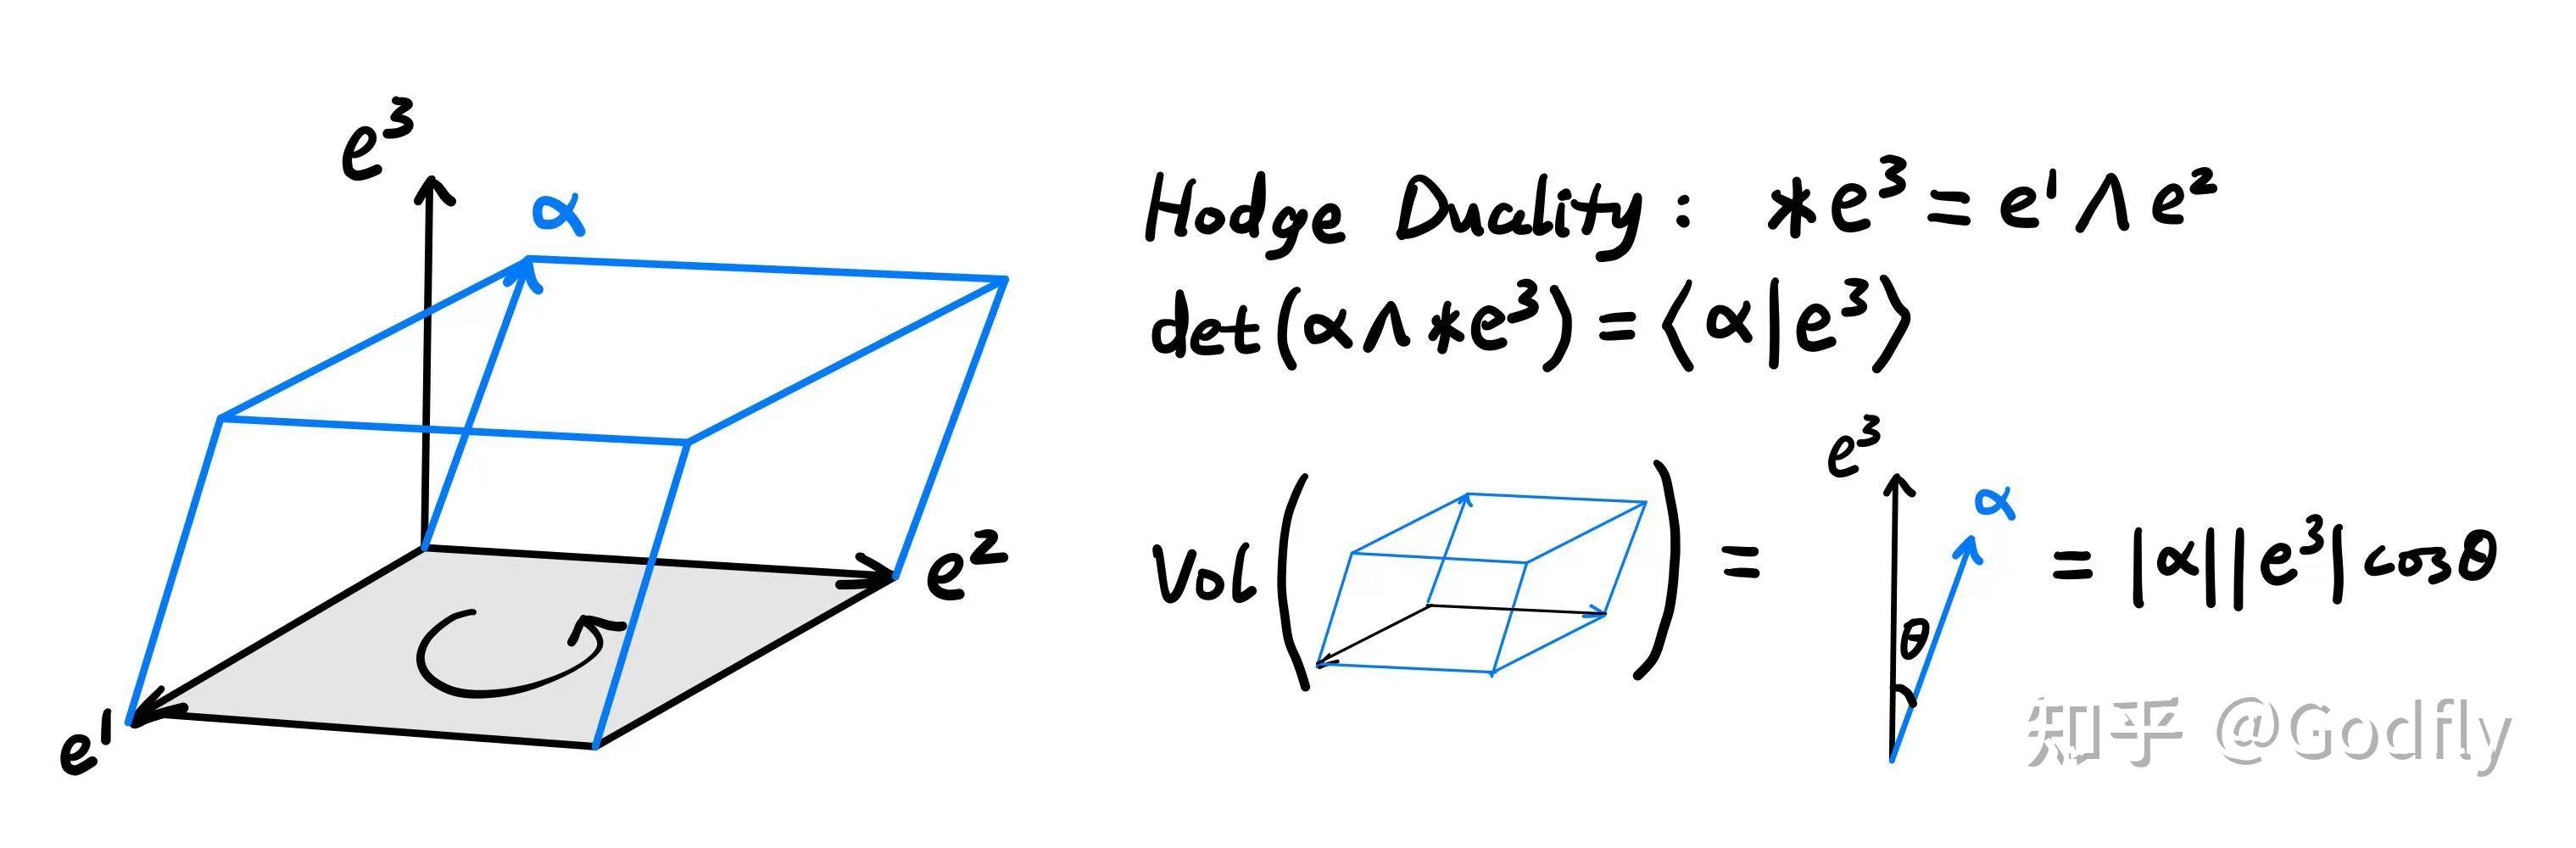 e³
α
e²
e¹
Hodge Duality: *e³ = e¹ ∧ e²
det(α ∧ *e³) = ⟨α|e³⟩
Vol( ) = = |α||e³| cosθ
e³
α
θ
知乎 @Godfly